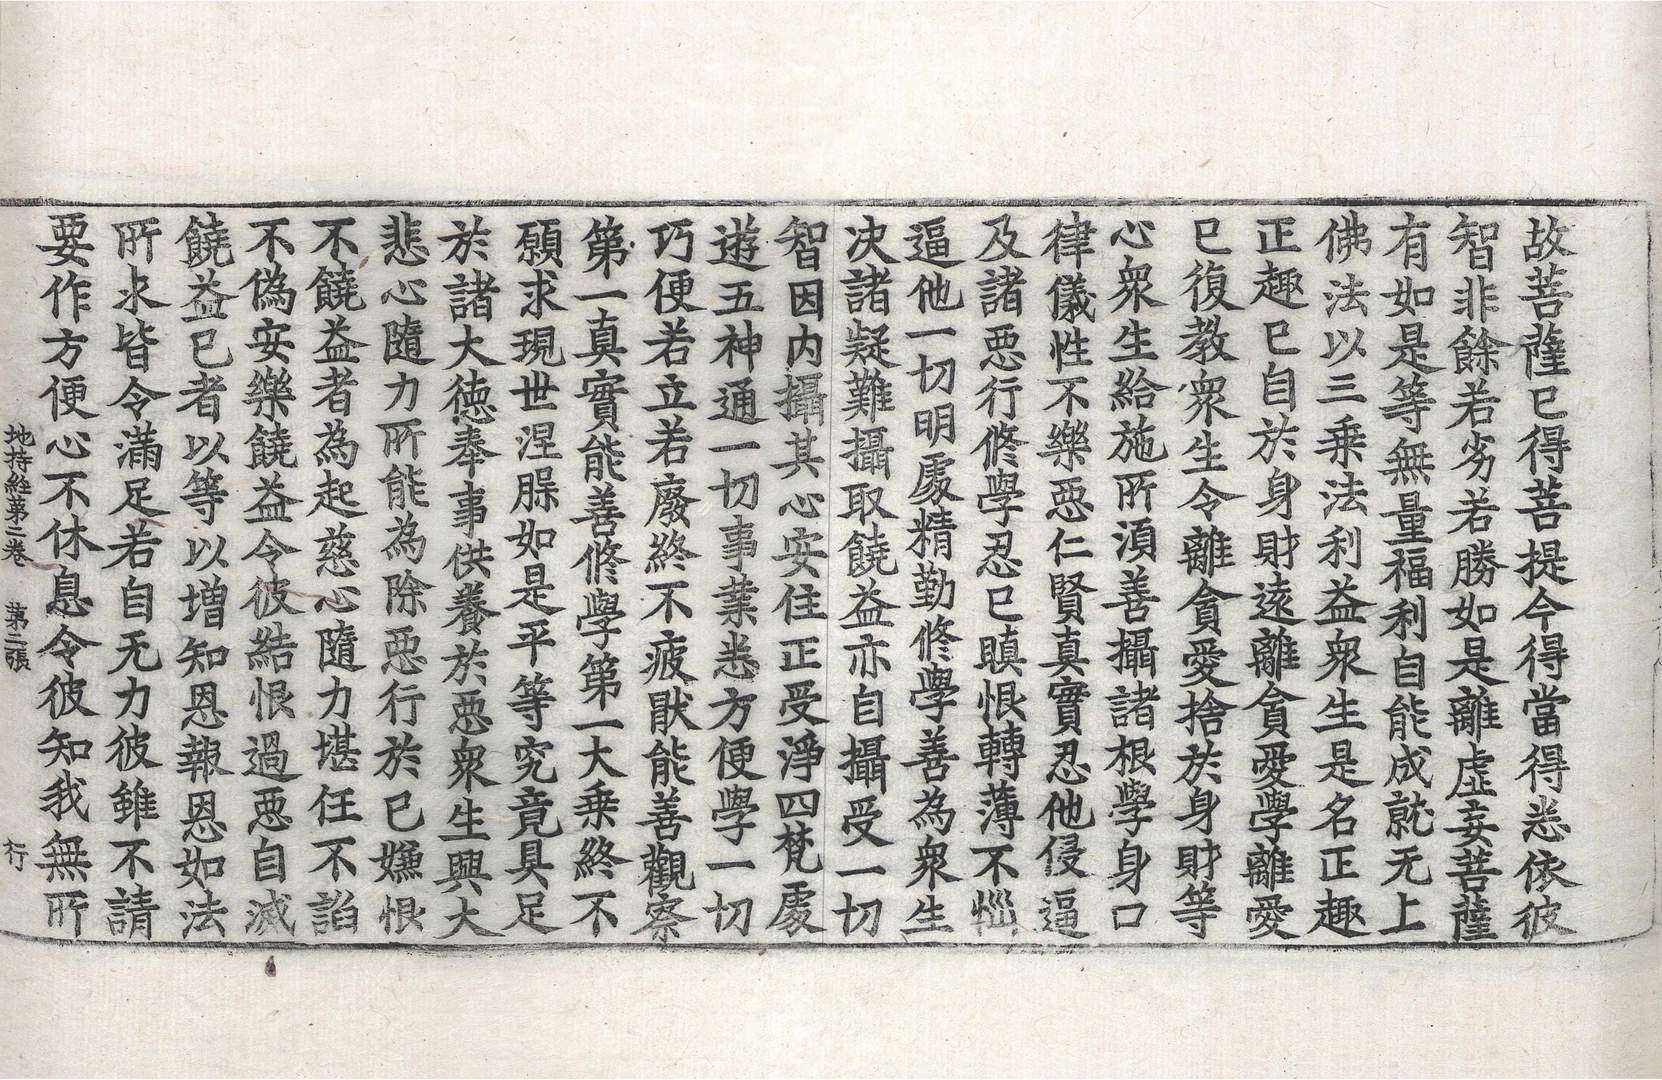 故菩薩已得菩提今得當得悉依彼
智非餘若劣若勝如是離虛妄菩薩
有如是等無量福利自能成就无上
佛法以三乗法利益衆生是名正趣
正趣已自於身財遠離貪愛學離愛
已復教衆生令離貪愛捨於身財等
心衆生給施所湏善攝諸根學身口
律儀性不樂惡仁賢真實忍他侵逼
及諸惡行修學忍已瞋恨轉薄不惱
逼他一切明處精勤修學善為衆生
决諸疑難攝取饒益亦自攝受一切
智因内攝其心安住正受淨四梵處
遊五神通一切事業悉方便學一切
巧便若立若廢終不疲猒能善觀察
第一真實能善修學第一大乗終不
願求現世涅槃如是平等究竟具足
於諸大德奉事供養於惡衆生興大
悲心隨力所能為除惡行於已嫌恨
不饒益者為起慈心隨力堪任不諂
不偽安樂饒益令彼結恨過惡自滅
饒益已者以等以增知恩報恩如法
所求皆令滿足若自无力彼雖不請
要作方便心不休息令彼知我無所
地持經第二卷　第二張　行